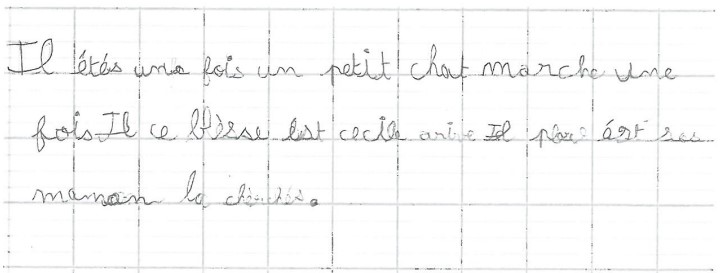 Il étés une fois un petit chat marche une
fois Il ce blèsse est cecile arive Il plus ést sa
maman la chechés.